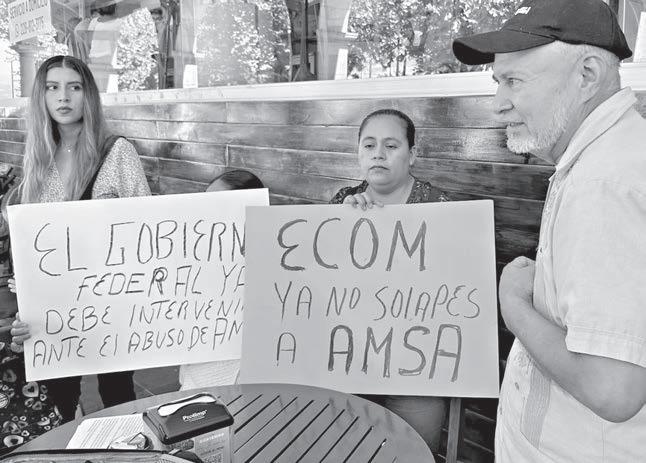 SERVICIO A DOMICILIO
EL GOBIERN
FEDERAL YA
DEBE INTERVENI
ANTE El ABUSO DE AM
ECOM
YA NO SOlAPES
A AMSA